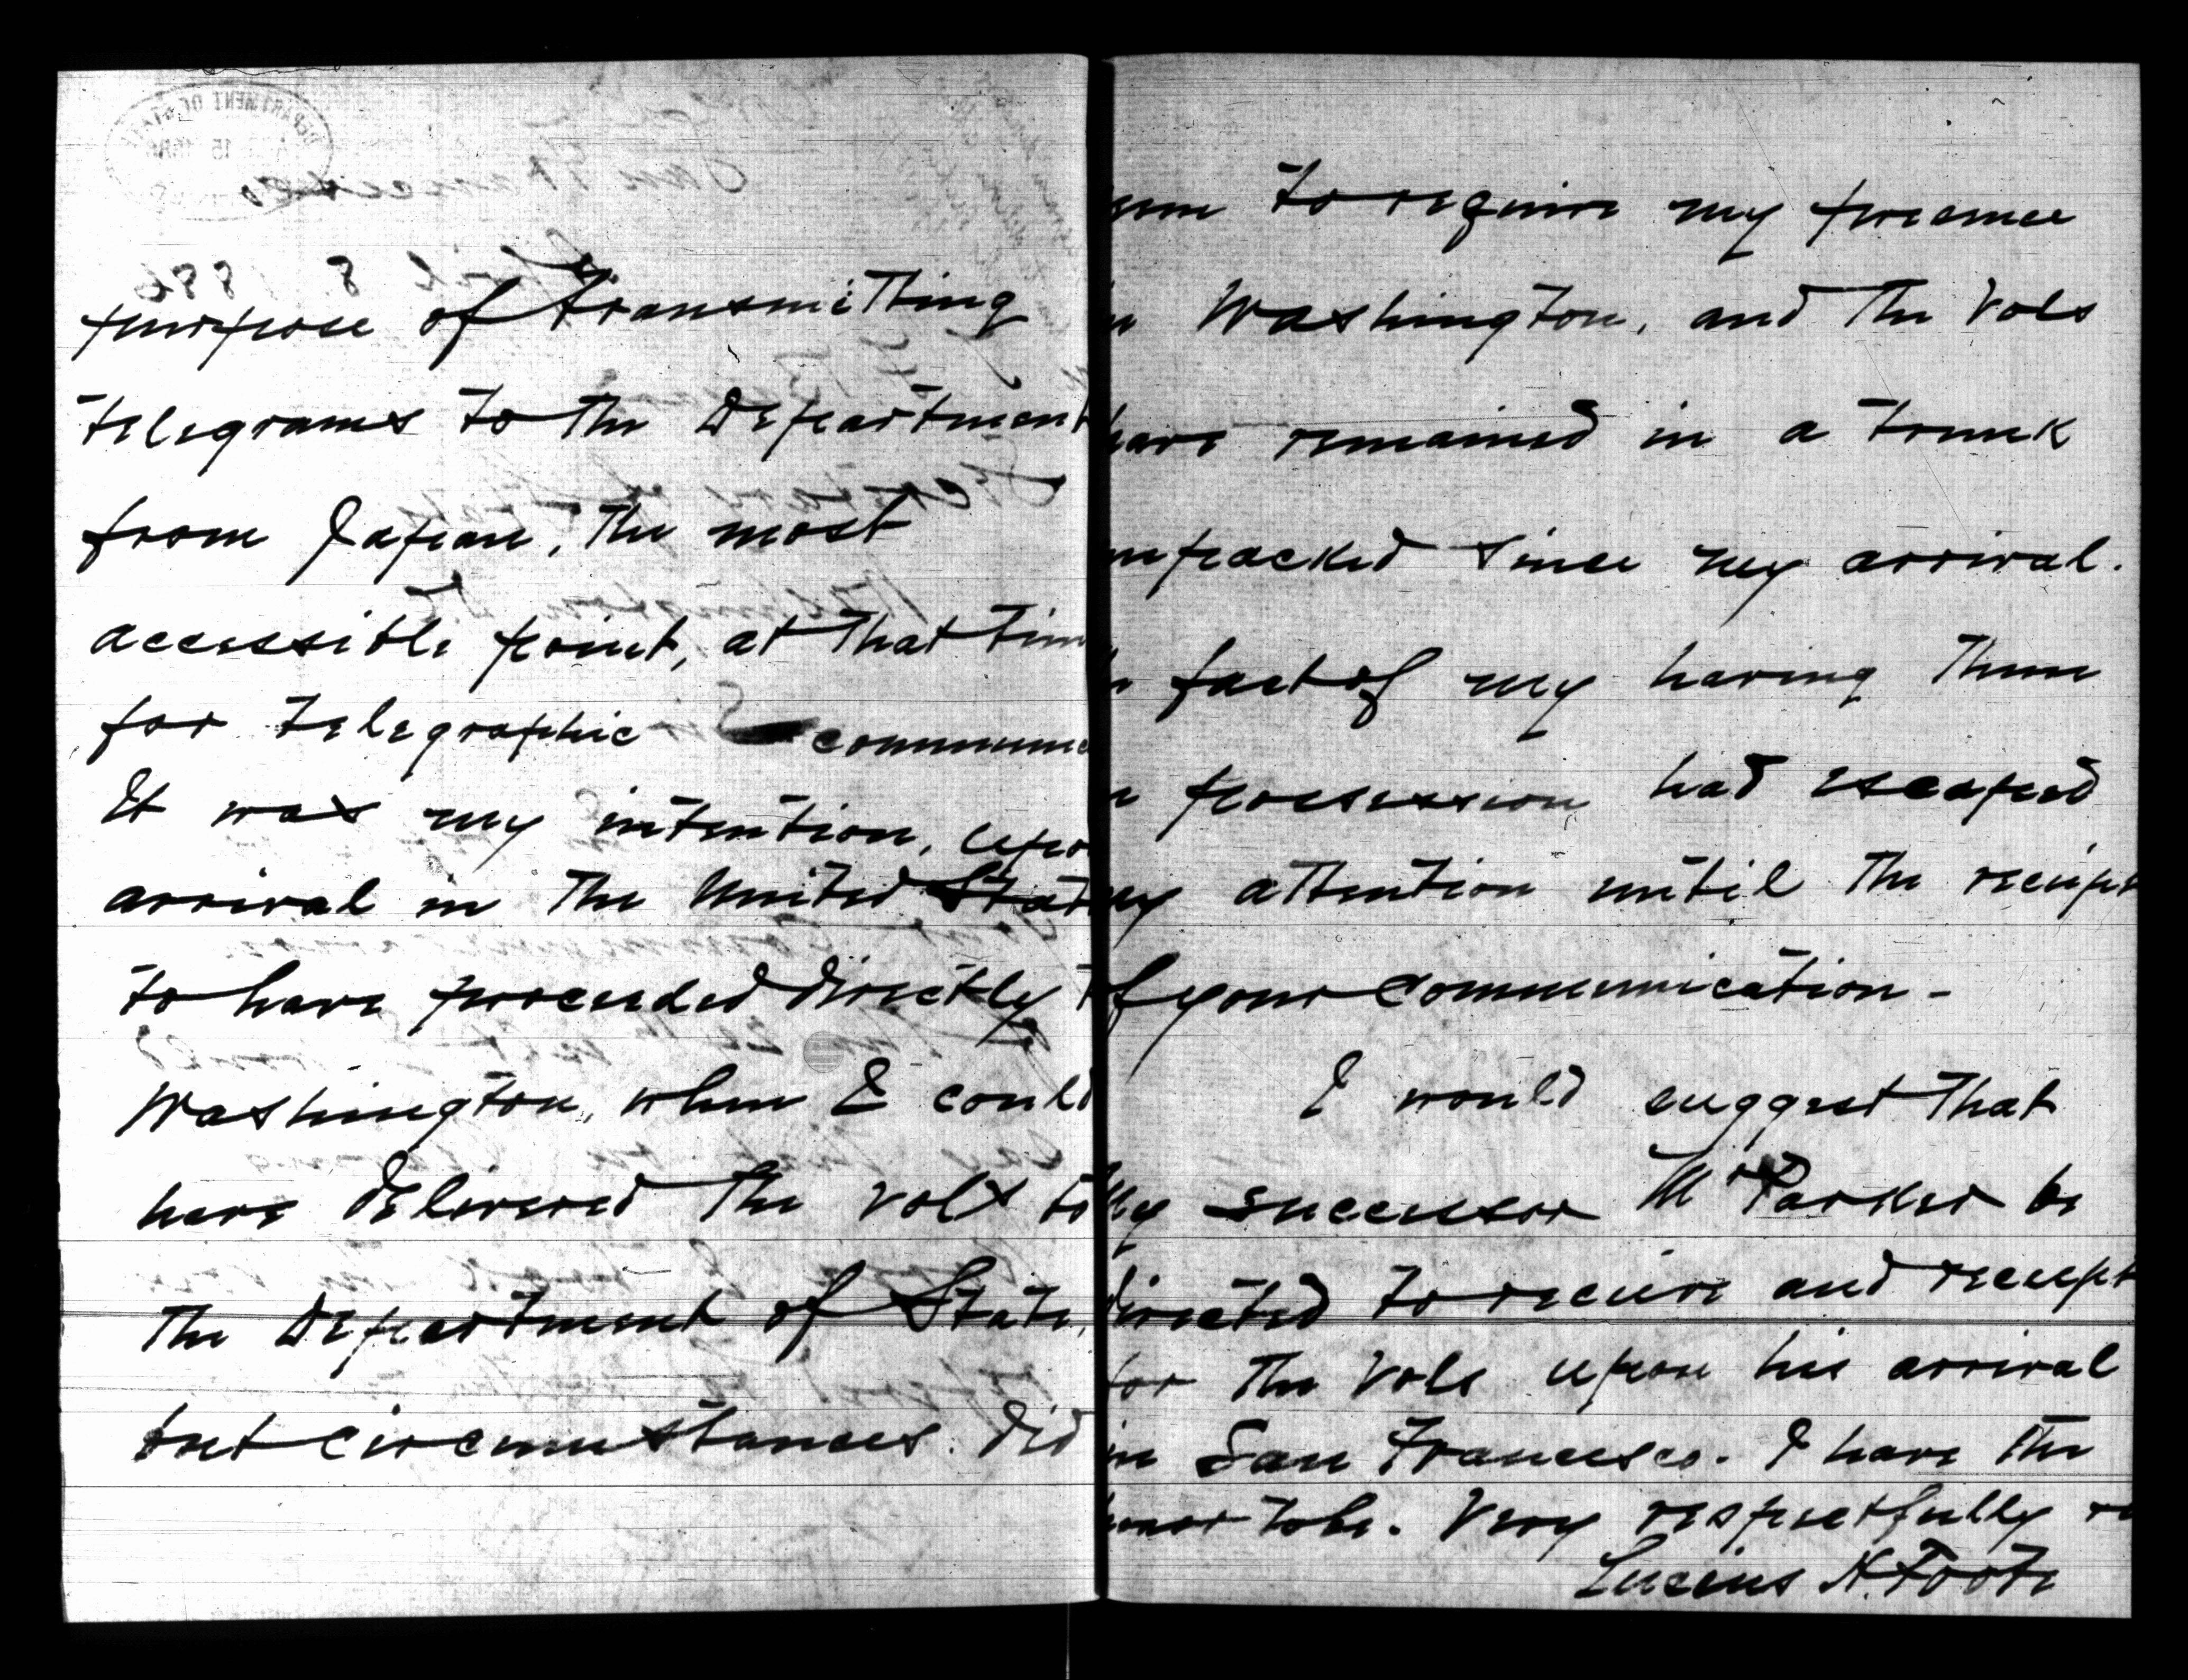 purpose of transmitting
telegrams to the Department
from Japan, the most
accessible point, at that tim
for telegraphic commun
It was my intention, upo
arrival in the United Stat
to have proceeded directly t
Washington, when I could
have delivered the vols to
the Department of State,
but circumstances did
to require my presence
Washington, and the Vols
have remained in a trunk
unpacked since my arrival.
fact of my having them
possession had escaped
my attention until the receipt
of your communication -
I would suggest that
my successor Mr Parker be
directed to receive and receipt
for the Vols upon his arrival
in San Francisco. I have the
honor to be. Very respectfully
Lucius H. Foote
DEPARTMENT OF STATE
15
San Francisco
April 8 1886
Washington D.C.